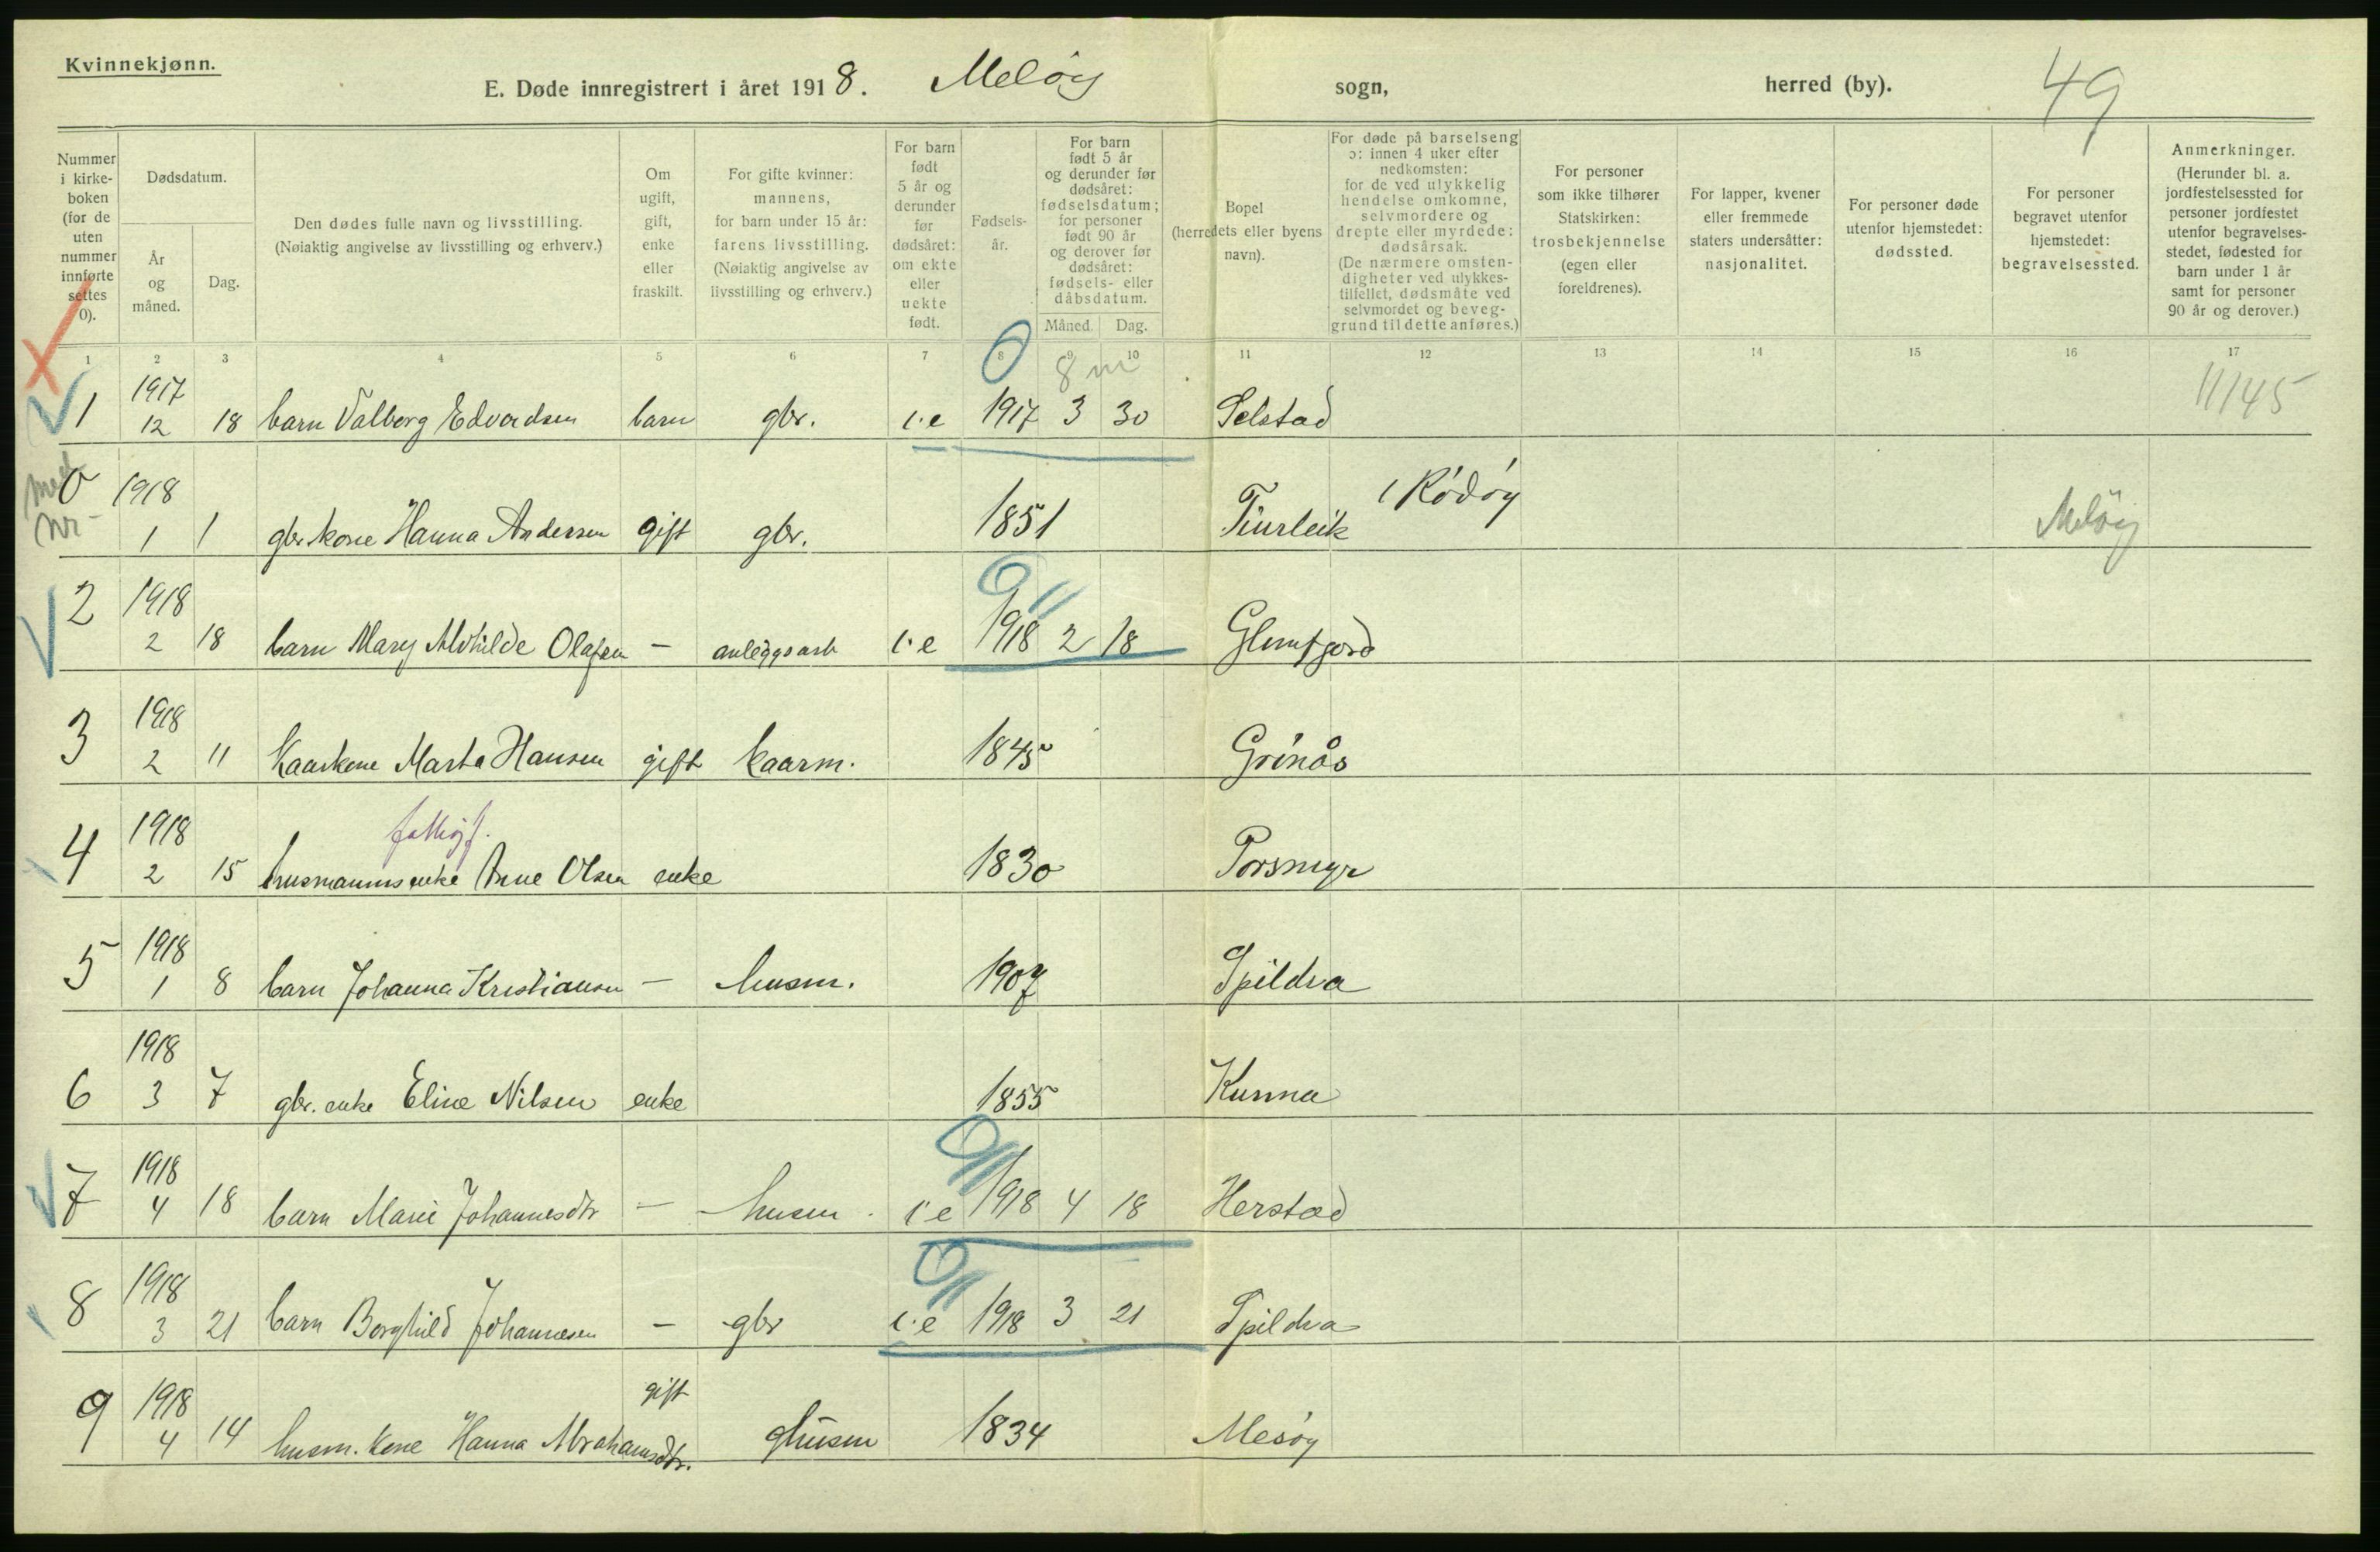 Kvinnekjønn.
E. Døde innregistrert i året 1918. Meløy sogn, herred (by). 49
Nummer i kirke- boken (for de uten nummer innførte settes 0).
Dødsdatum.
År og måned.
Dag.
Den dødes fulle navn og livsstilling.
(Nøiaktig angivelse av livsstilling og erhverv.)
Om ugift, gift, enke eller fraskilt.
For gifte kvinner: mannens, for barn under 15 år: farens livsstilling. (Nøiaktig angivelse av livsstilling og erhverv.)
For barn født 5 år og derunder før dødsåret: om ekte eller uekte født.
Fødsels- år.
For barn født 5 år og derunder før dødsåret: fødselsdatum; for personer født 90 år og derover før dødsåret: fødsels- eller dåbsdatum.
Måned. Dag.
Bopel (herredets eller byens navn).
For døde på barselseng ɔ: innen 4 uker efter nedkomsten: for de ved ulykkelig hendelse omkomne, selvmordere og drepte eller myrdede: dødsårsak. (De nærmere omsten- digheter ved ulykkes- tilfellet, dødsmåte ved selvmordet og beveg- grund til dette anføres.)
For personer som ikke tilhører Statskirken: trosbekjennelse (egen eller foreldrenes).
For lapper, kvener eller fremmede staters undersåtter: nasjonalitet.
For personer døde utenfor hjemstedet: dødssted.
For personer begravet utenfor hjemstedet: begravelsessted.
Anmerkninger. (Herunder bl. a. jordfestelsessted for personer jordfestet utenfor begravelses- stedet, fødested for barn under 1 år samt for personer 90 år og derover.)
1 2 3 4 5 6 7 8 9 10 11 12 13 14 15 16 17
0 8 m 11/45
1 1917 12 18 barn Valborg Edvardsen barn gbr. i.e 1917 3 30 Selstad
med nr
0 1918 1 1 gbr kone Hanna Andersen gift gbr. 1851 Tinrleik i Rödöy Melöy
0
2 1918 2 18 barn Mary Alvhilde Olafsen — anleggsarb i.e 1918 2 18 Glomfjord
3 1918 2 11 Kaarkone Marta Hansen gift kaarm. 1845 Grönås
fattigf.
4 1918 2 15 husmannsenke Anne Olsen enke 1830 Porsmyr
5 1918 1 8 barn Johanna Kristiansen — husm. 1907 Spildra
6 1918 3 7 gbr. enke Eline Nilsen enke 1855 Kunna
0
7 1918 4 18 barn Marie Johannesdtr — husm. i.e 1918 4 18 Herstad
0
8 1918 3 21 barn Borghild Johannesen — gbr i.e 1918 3 21 Spildra
9 1918 4 14 husm. kone Hanna Abrahamsdtr. gift husm 1834 Mesöy